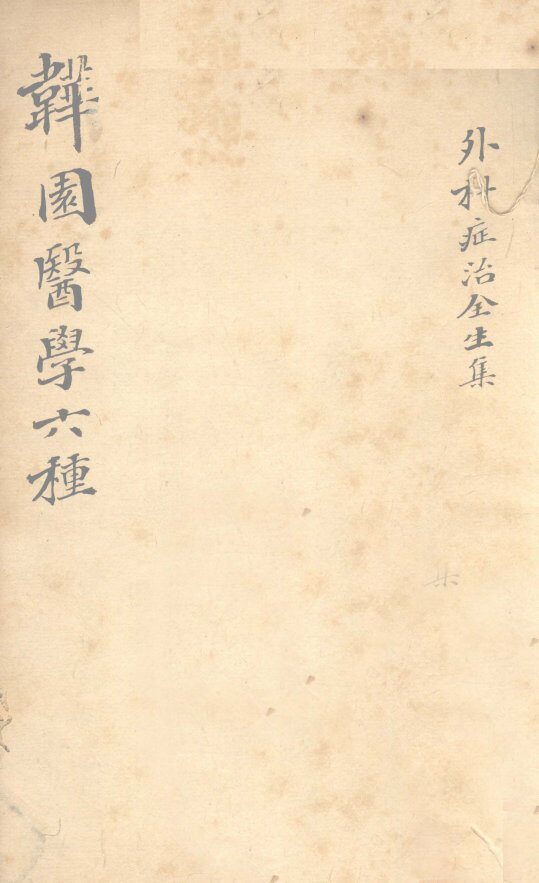 外科症治全生集
韡園醫學六種